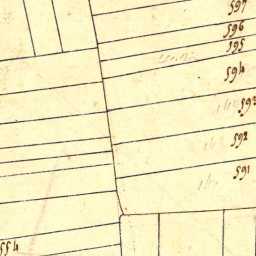 597
596
595
594
593
592
591
554